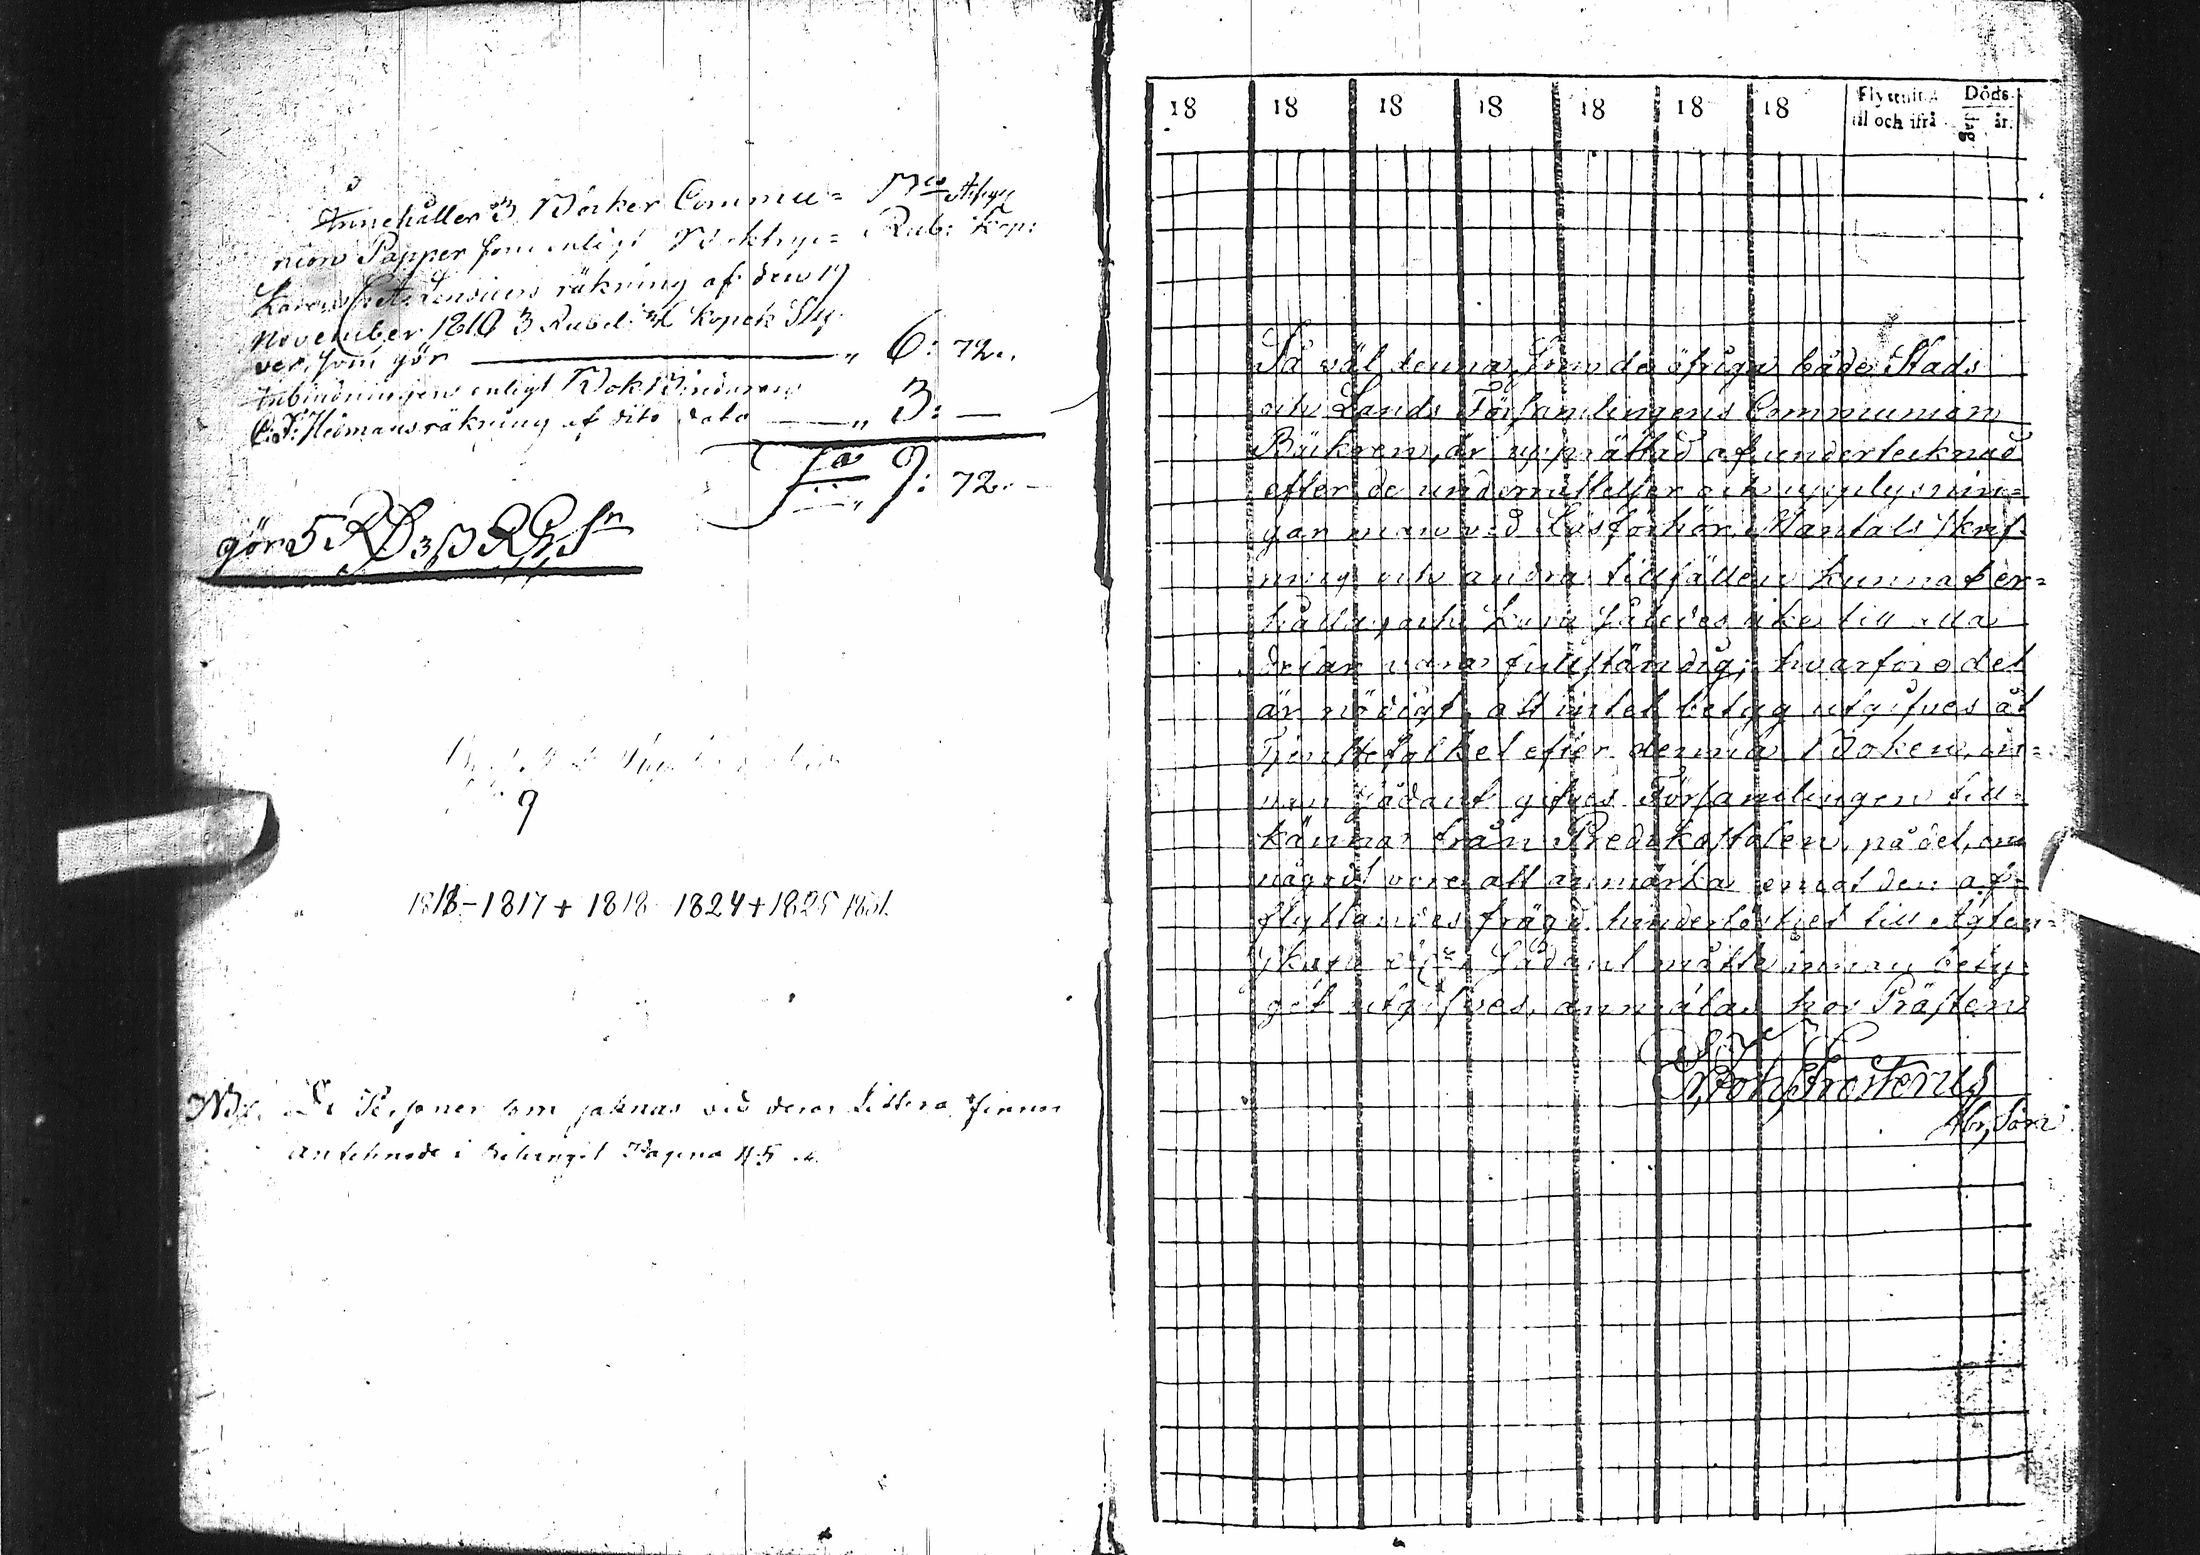 Innehåller 3 Böcker Commu= Bco Assign
nion Papper som enligt Boktryc= Rub: Kop:
november 1810 3 Rubel 36 kopek Sly
ver, som gör — „ 6: 72„
Inbindningen enligt Bok Bindaren
Heimans räkning af dito dato — „ 3: —
Sa 9: 72. –
gör 5 RD
9
1818–1817 + 1818 1824 + 1825 1831.
NB. De Personer som saknas vid deras Littera finnas
antecknade i Bihanget Pagina 115
18 18 18 18 18 18 18 Flyttning Döds-
til och ifrå dag år.
Så väl denna, som de öfriga både Stads
och Lands Församlingens Communion
Böckren, är upprättad af undertecknad
efter de underrättelser och upplysnin=
gar man vid Läsförhör, Mantals Skrif-
ning och andra tillfällen kunnat er=
hålla, och kan således icke till alla
delar vara fullständig; hvarföre det
är nödigt, att intet betyg utgifves åt
Tjenstefolket efter denna Boken, in=
nan sådant gifves Församlingen till=
känna från Predikostolen, på det, om
något vore att anmärka emot den af=
flyttandes frägd, hinderlöshet till Ägten=
skap etc. Sådant måtte innan bety-
get utgifves, anmälas hos Prästen
Joh Frosterus